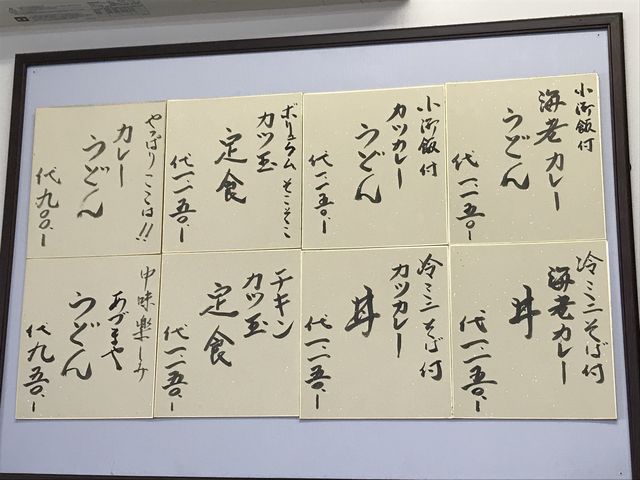 小御飯付
海老カレー
うどん
代一、一五〇、ー
小御飯付
カツカレー
うどん
代一、一五〇、ー
ボリュウム そこそこ
カツ玉
定食
代一、一五〇、ー
やっぱりここは!!
カレー
うどん
代九〇〇、ー
冷ミニそば付
海老カレー
丼
代一、一五〇、ー
冷ミニそば付
カツカレー
丼
代一、一五〇、ー
チキン
カツ玉
定食
代一、一五〇、ー
中味楽しみ
あづまや
うどん
代九五〇、ー